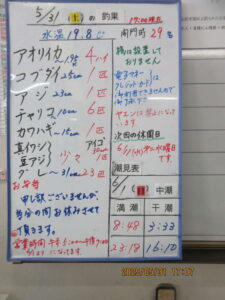 5/31(土)の釣果
水温 19.8℃
17:00現在
開門時 29名
アオリイカ ~1.95 4ハイ
コブダイ 25cm 1匹
アジ 23cm 1匹
チャリコ 10cm 6匹
カワハギ 15cm 1匹
真イワシ
豆アジ 少々
アイゴ 30cm 1匹
グレ ~31cm 23匹
お弁当
申し訳ございませんが、
当分の間お休みさせて
頂きます。
営業時間 午前5:00~午後7:00
になってます。
橋は設置して
おりません
電子マネー
クレジットカード
ご利用できませんので
ヤエンは禁止になって
います。
次回の休園日
6/ (水) 第 水曜日です。
潮見表
6/1(日) 中潮
満潮 干潮
8:48 3:33
23:18 16:10
2025/05/31 17:37